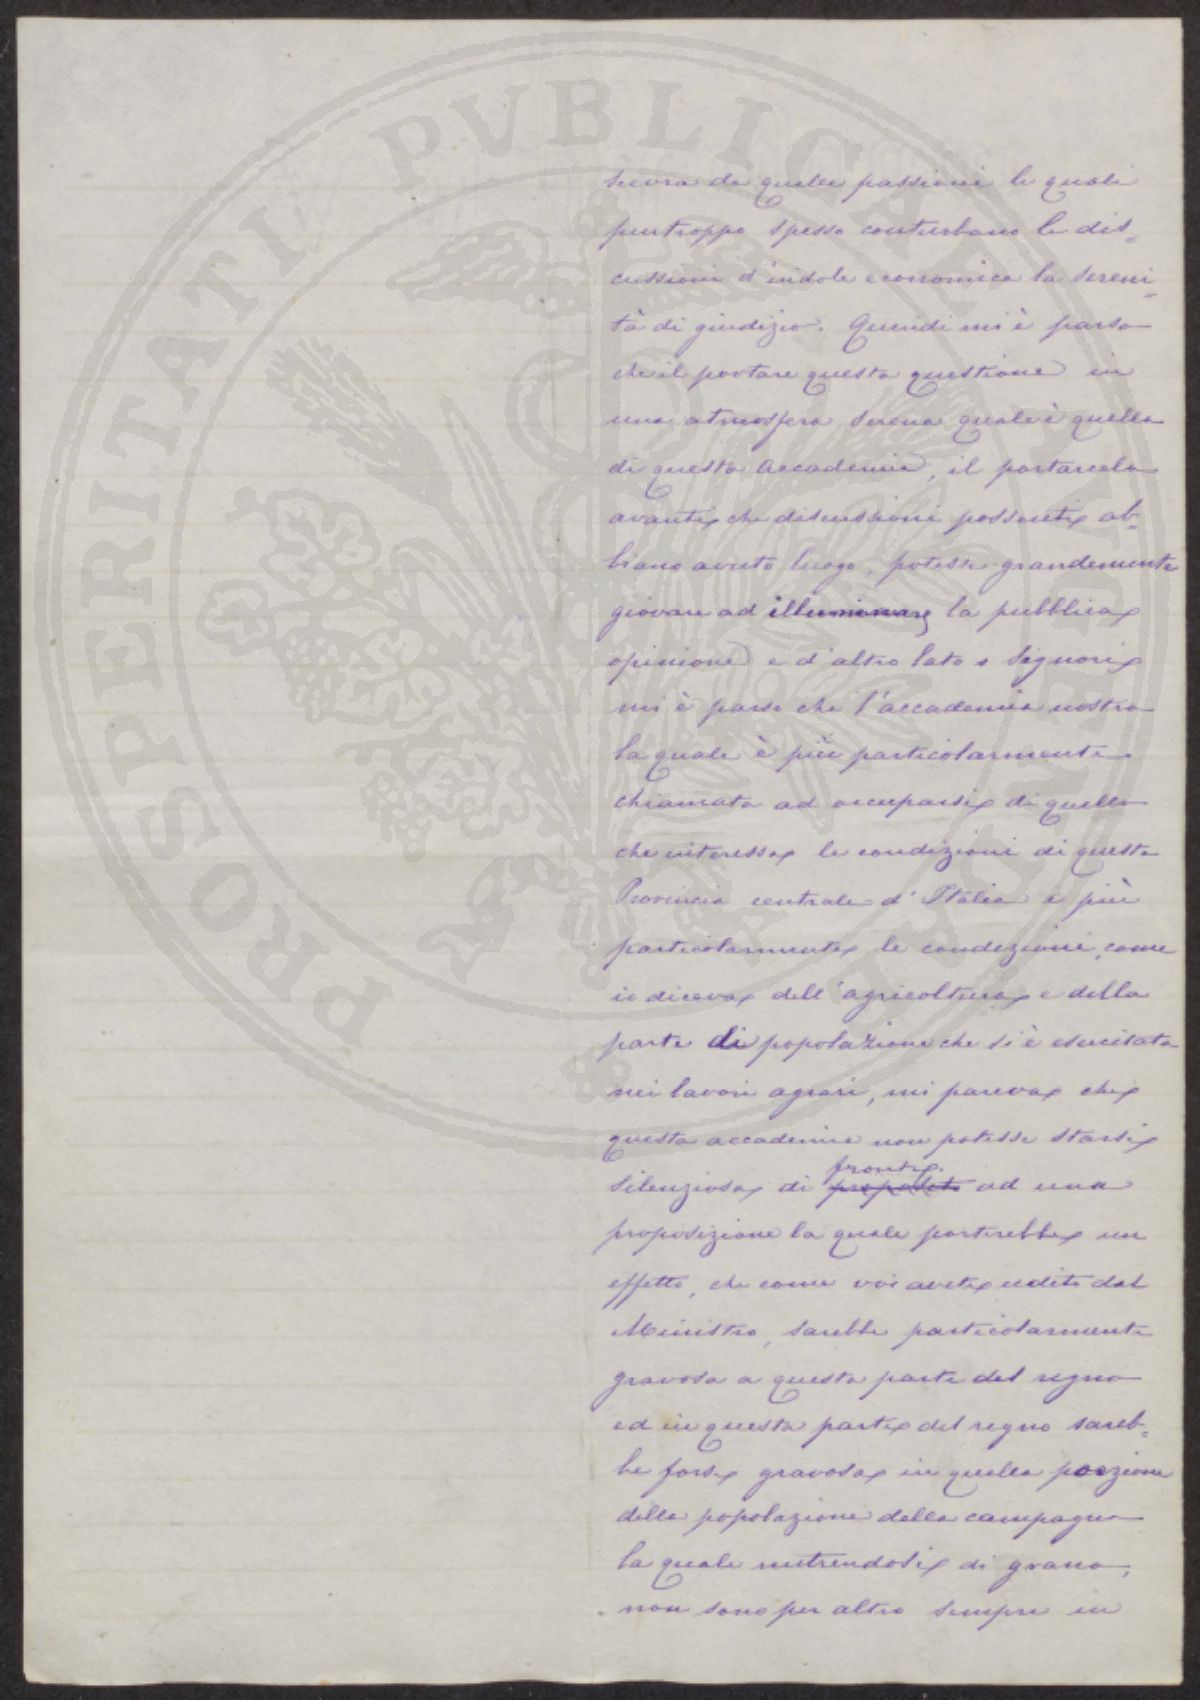 PROSPERITATI PVBLICAE AVGENDAE
scevra da quelle passioni le quali
purtroppo spesso conturbano le dis-
cussioni d'indole economica la sereni-
tà di giudizio. Quindi mi è parso
che il portare questa questione in
una atmosfera serena quale è quella
di questa Accademia, il portarcela
avanti che discussioni possenti ab-
biano avuto luogo, potesse grandemente
giovare ad illuminare la pubblica
opinione e d'altro lato o Signori
mi è parso che l'accademia nostra
la quale è più particolarmente
chiamata ad occuparsi di quello
che interessa le condizioni di questa
Provincia centrale d'Italia e più
particolarmente le condizioni, come
io diceva dell'agricoltura e della
parte di popolazione che si è esercitata
nei lavori agrari, mi pareva che
questa accademia non potesse starsi
silenziosa di proposito fronte ad una
proposizione la quale porterebbe un
effetto, che come voi avete udito dal
Ministro, sarebbe particolarmente
gravosa a questa parte del regno
ed in questa parte del regno sareb-
be forse gravosa in quella porzione
della popolazione della campagna
la quale nutrendosi di grano,
non sono per altro sempre in